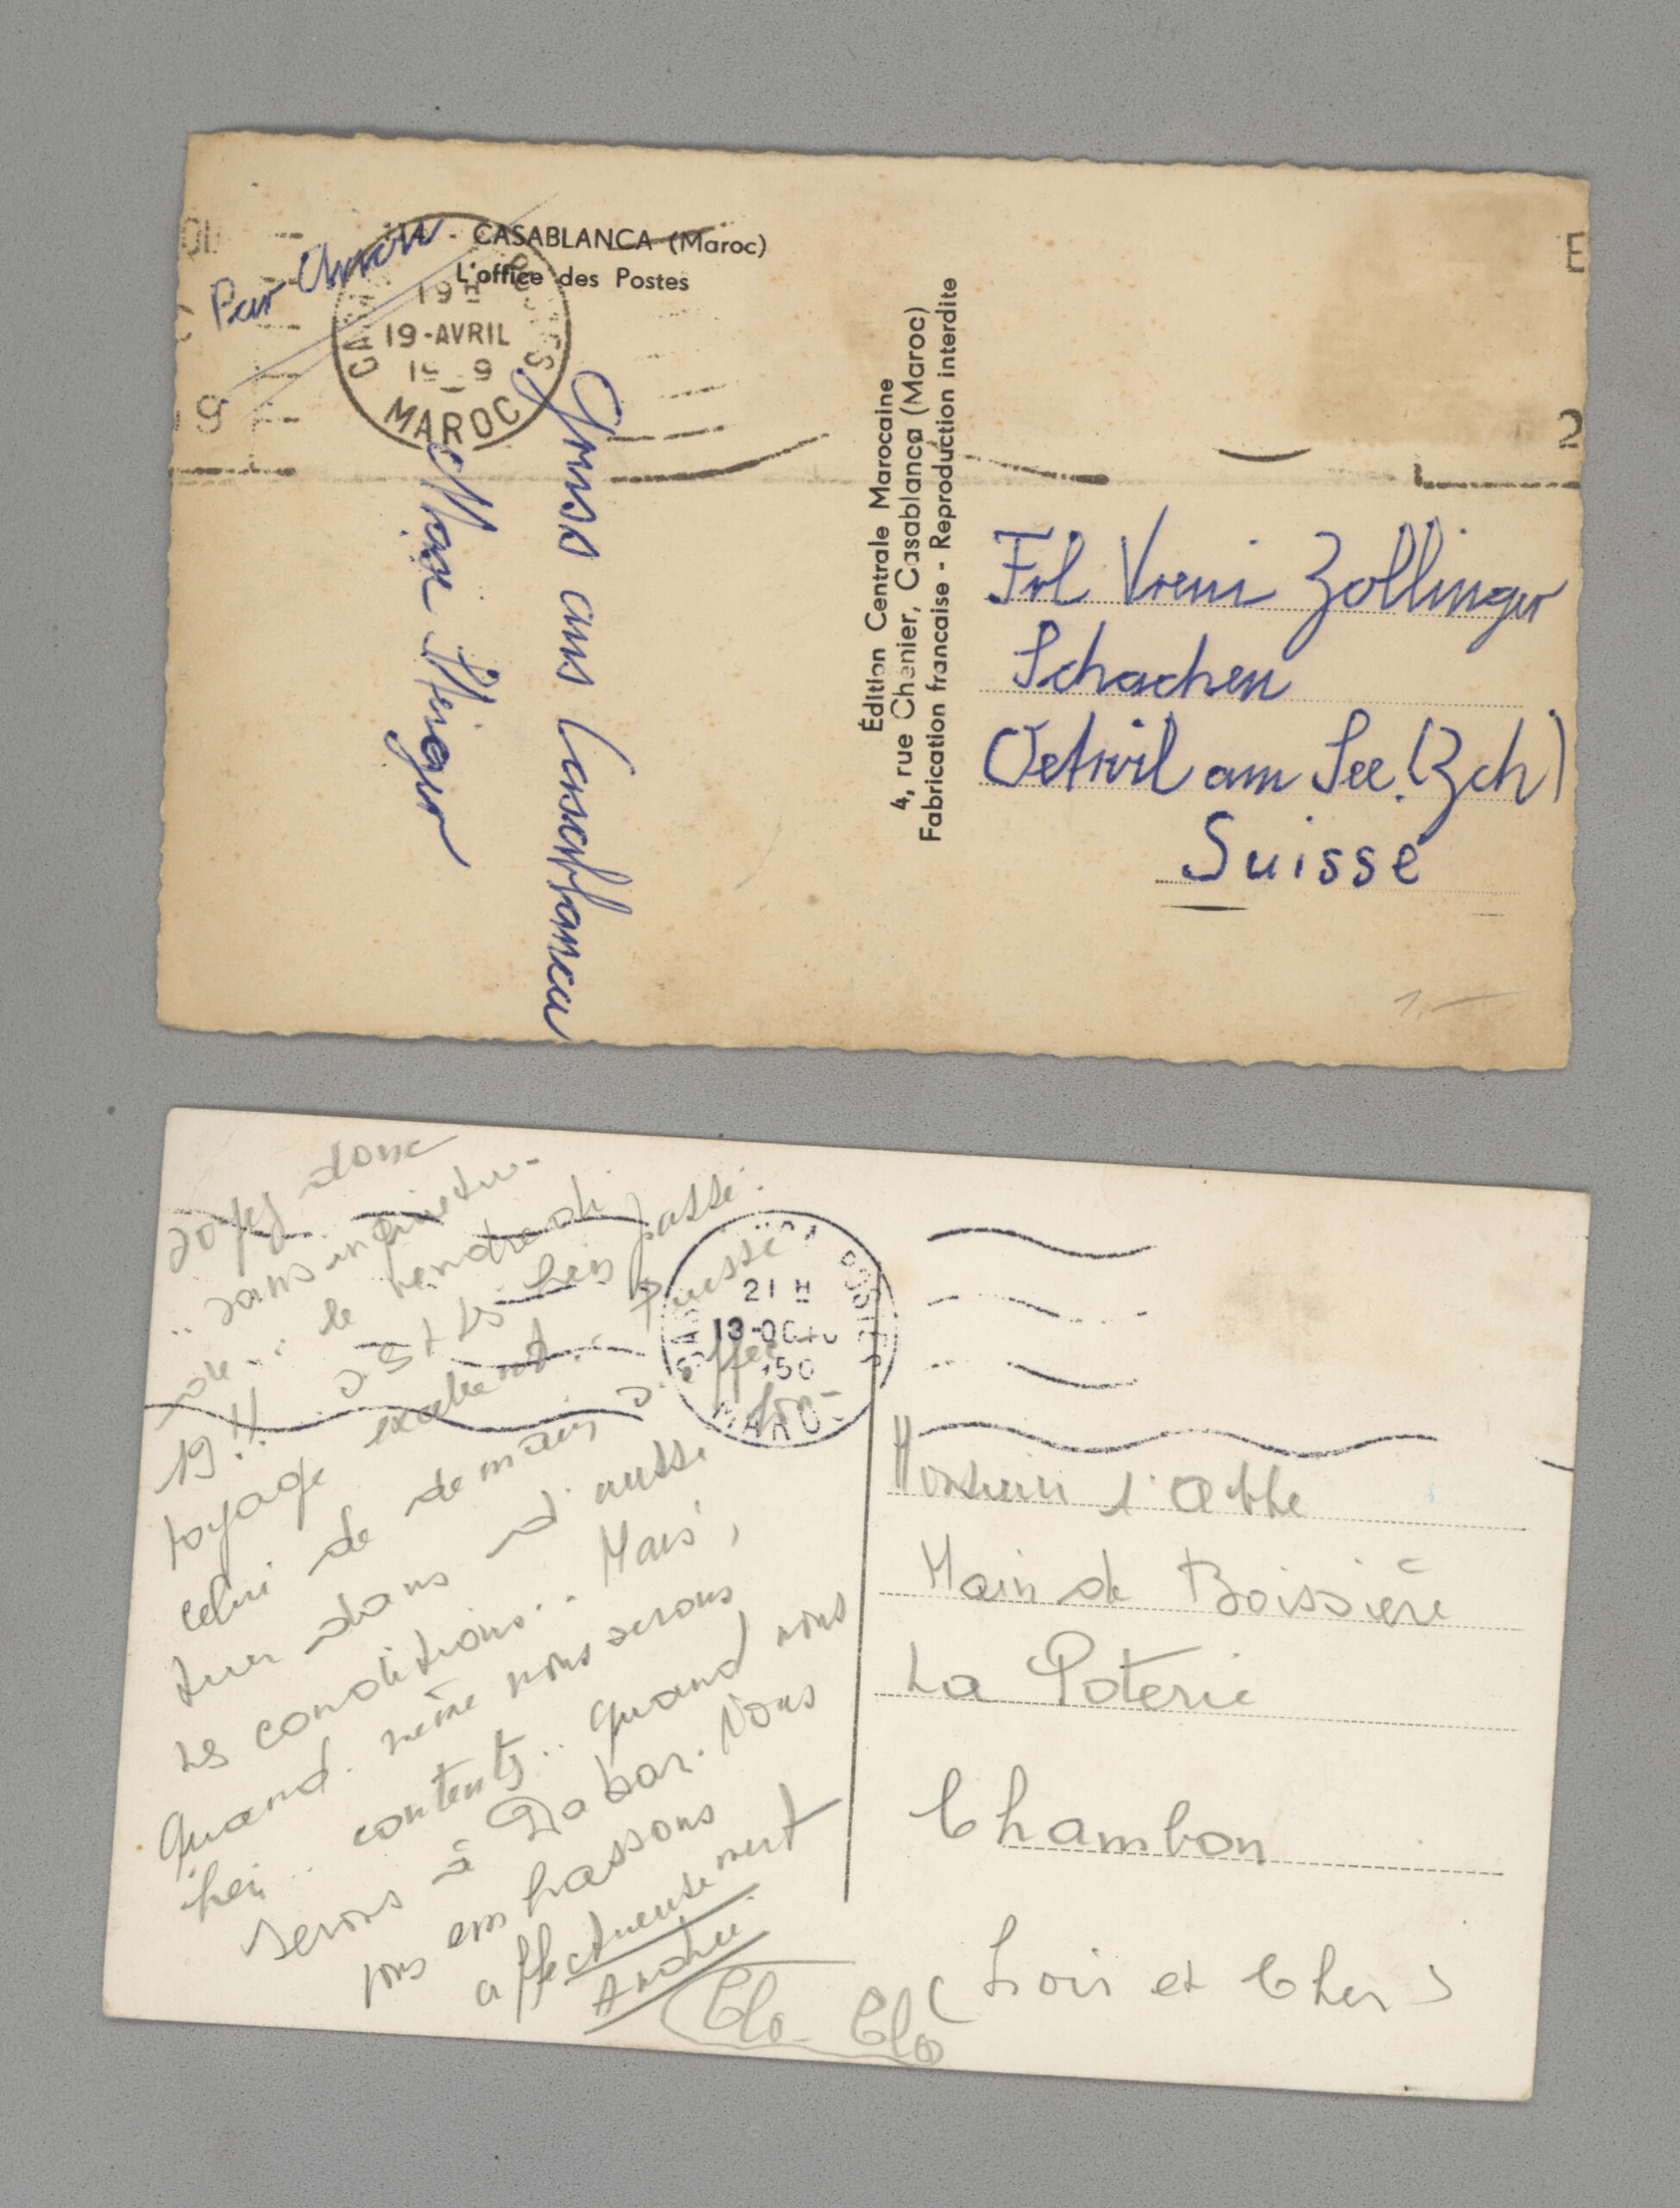 Par Avion
114 - CASABLANCA (Maroc)
L'office des Postes
19 H
19-AVRIL
MAROC
Gruss aus Casablanca
Édition Centrale Marocaine
4, rue Chenier, Casablanca (Maroc)
Fabrication francaise - Reproduction interdite
Frl Vreni Zollinger
Schachen
Oetwil am See (Zch)
Suisse
1.-
Soyez donc
sans inquiétu-
de... le vendredi
19!! s'est très bien passé.
voyage excellent. Puisse
celui de demain s'effec
tuer dans d'aussi bon-
nes conditions.. Mais,
Quand même nous serons
bien contents.. quand nous
serons à Dakar. Nous
vous embrassons
affectueusement
Clo-Clo
21 H
13-OCT
50
MAROC
Monsieur l'Abbé
Main de Boissière
La Poterie
Chambon
(Loir et Cher)